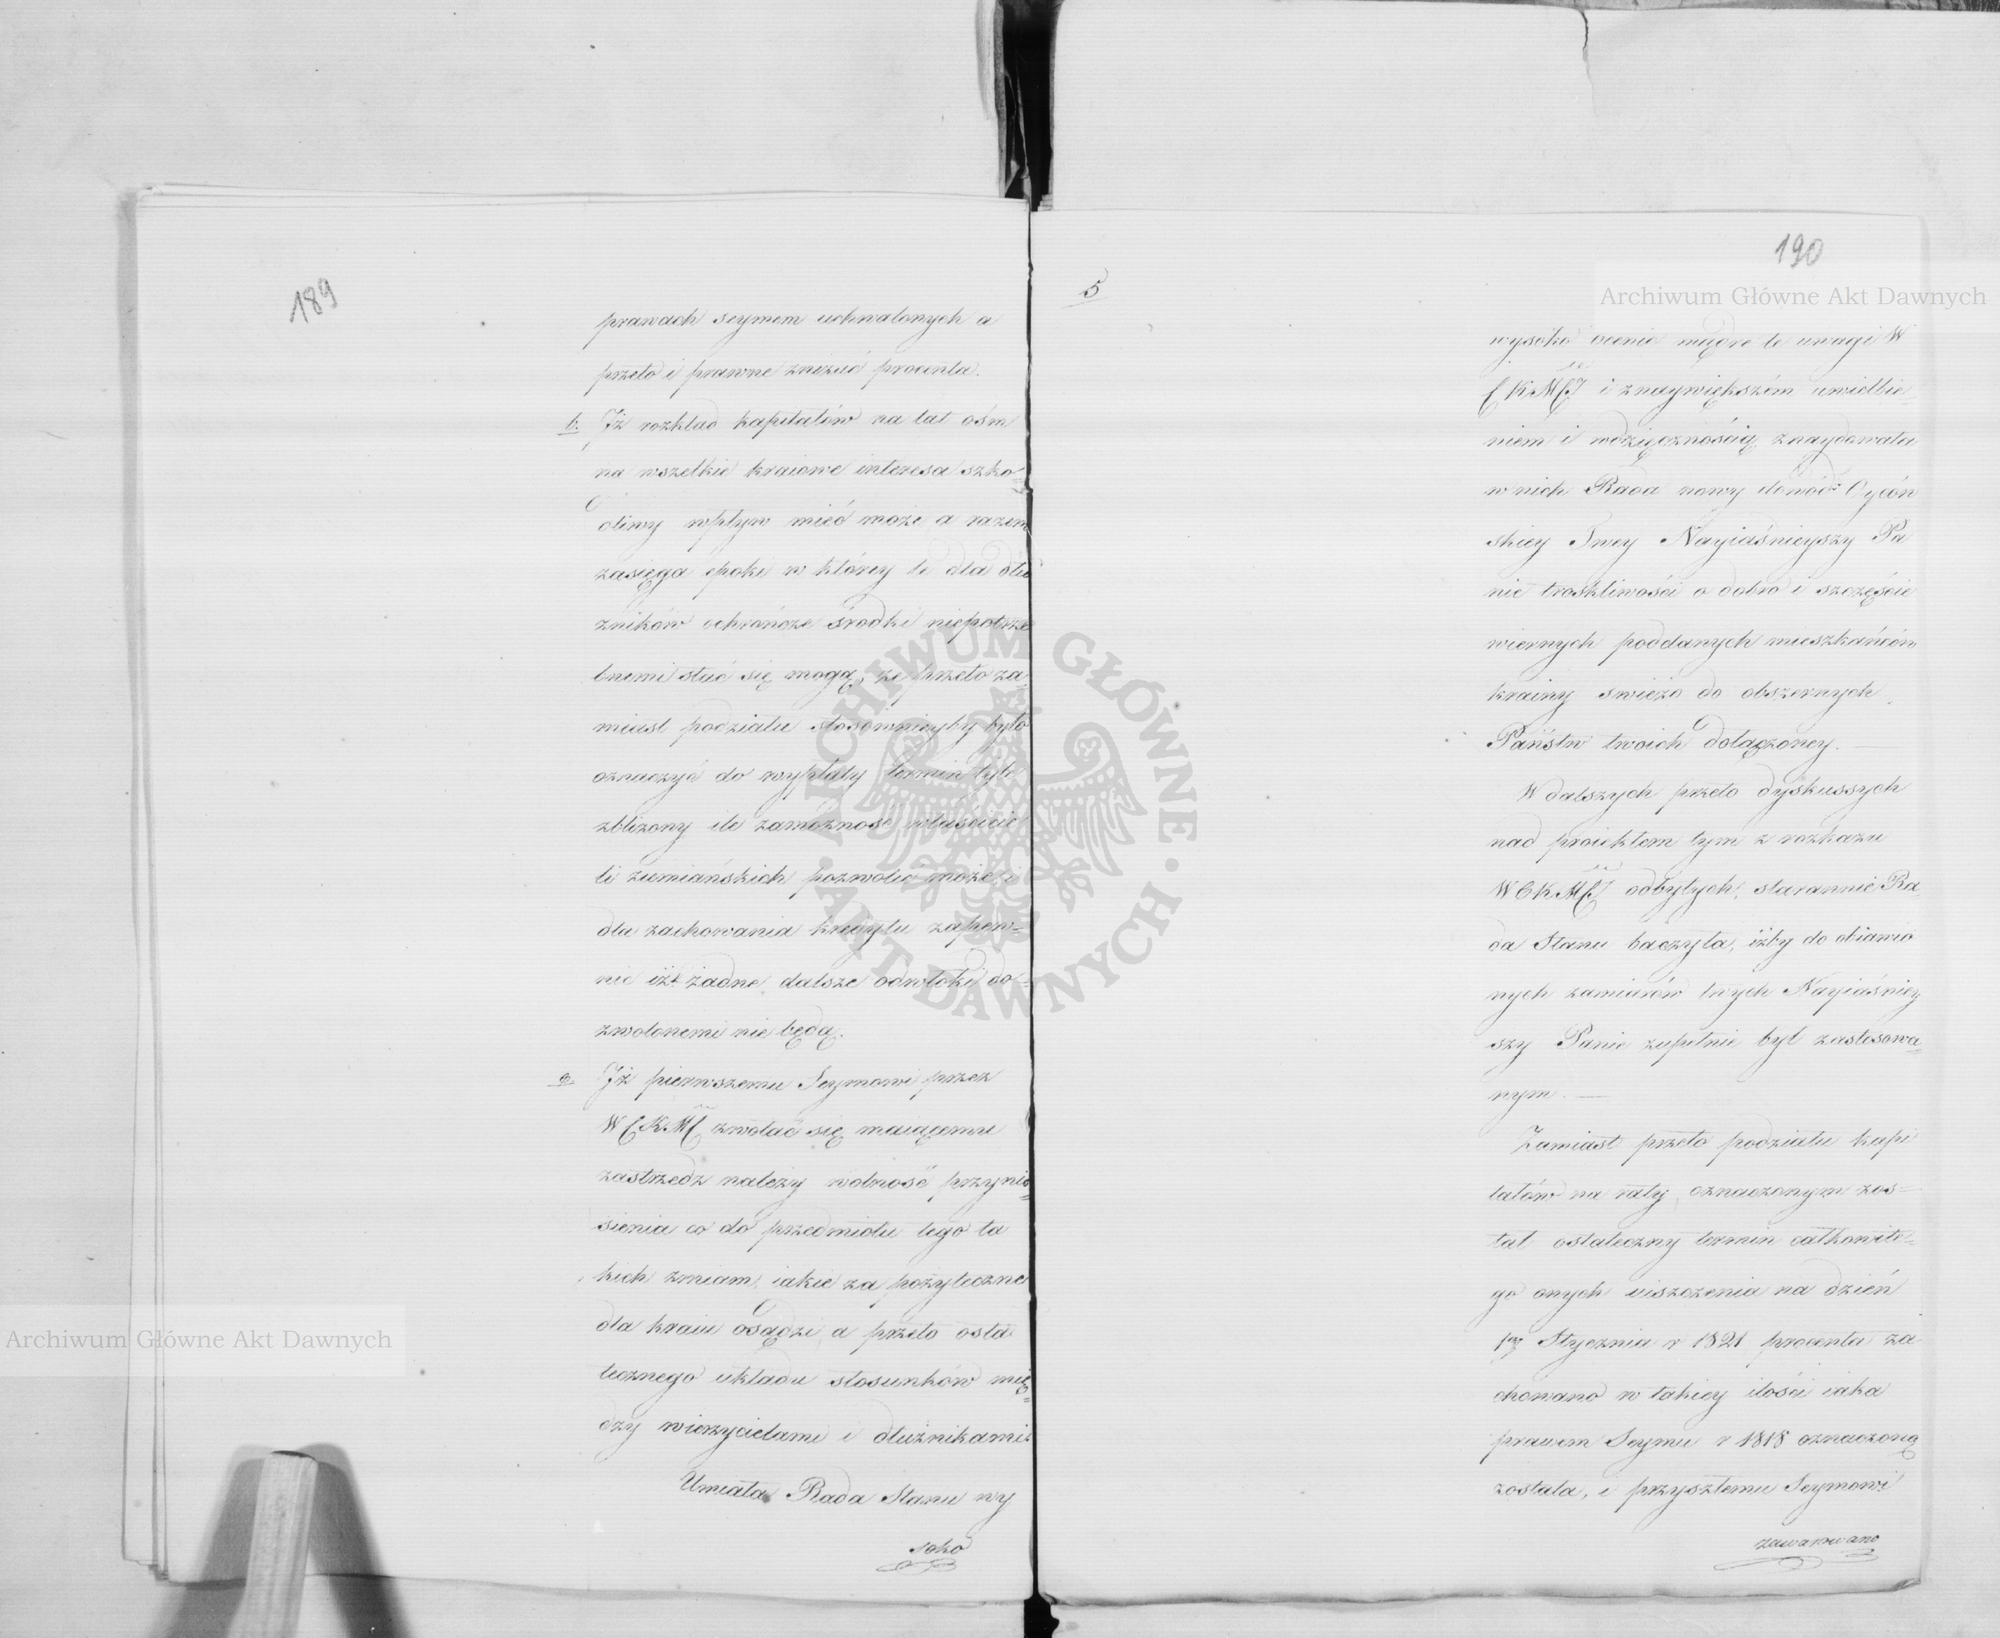 189
prawach seymem uchwalonych a
przeto i prawne zniżać procenta.
b. Iż rozkład kapitałów na lat ośm
na wszelkie kraiowe interesa szko-
dliwy wpływ mieć może a razem
zasięga epoki w którey te dla dłu
żników ochrończe środki niepotrze
bnemi stać się mogą, że przeto za-
miast podziału stosownieyby było
oznaczyć do wypłaty termin tyle
zbliżony ile zamożność właścicie
li ziemiańskich pozwolić może i
dla zachowania kredytu zapew-
nić iż żadne dalsze odwłoki do-
zwolonemi nie będą.
Iż pierwszemu Seymowi przez
W C K M zwołać się maiącemu
zastrzedz należy wolność przynie-
sienia co do przedmiotu tego ta
kich zmian, iakie za pożyteczne
dla kraiu osądzi, a przeto osta
tecznego układu stosunków mię-
dzy wierzycielami i dłużnikami.
Umiała Rada Stanu wy
soko
5
190
wysoko ocenić mądre te uwagi W
C K M i z naywiększém uwielbie-
niem i wdzięcznością znaydowała
w nich Rada nowy dowód Oycow
skiey Twey Nayiaśnieyszy Pa
nie troskliwości o dobro i szczęście
wiernych poddanych mieszkańców
krainy świeżo do obszernych
Państw twoich dołączoney.
W dalszych przeto dyskussyach
nad proiektem tym z rozkazu
W C K M odbytych, starannie Ra-
da Stanu baczyła, iżby do obiawio
nych zamiarów twych Nayiaśniey
szy Panie zupełnie był zastosowa-
nym.
Zamiast przeto podziału kapi
tałów na raty, oznaczonym zos-
tał ostateczny termin całkowite-
go onych uiszczenia na dzień
1go Stycznia r 1821 procenta za-
chowano w takiey ilości iaka
prawem Seymu r 1818 oznaczoną
została, i przyszłemu Seymowi
zawarowano
Archiwum Główne Akt Dawnych
Archiwum Główne Akt Dawnych
ARCHIWUM GŁÓWNE AKT DAWNYCH